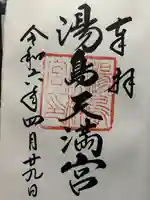 奉拝
湯島天満宮
令和六年四月廿九日